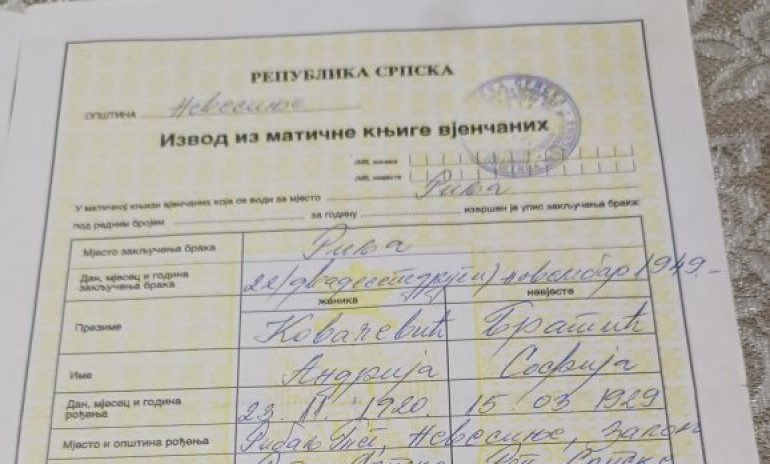 РЕПУБЛИКА СРПСКА
ОПШТИНА Невесиње
Извод из матичне књиге вјенчаних
ЈМБ. жениха
ЈМБ. невјесте
У матичној књизи вјенчаних која се води за мјесто Риља
под редним бројем за годину извршен је упис закључења брака:
Мјесто закључења брака Риља
Дан, мјесец и година закључења брака 22/двадесетдруги/новембар 1949.-
женика невјесте
Презиме Ковачевић Братић
Име Андрија Софија
Дан, мјесец и година рођења 23. 11. 1920. 15 03 1929
Мјесто и општина рођења Невесиње,